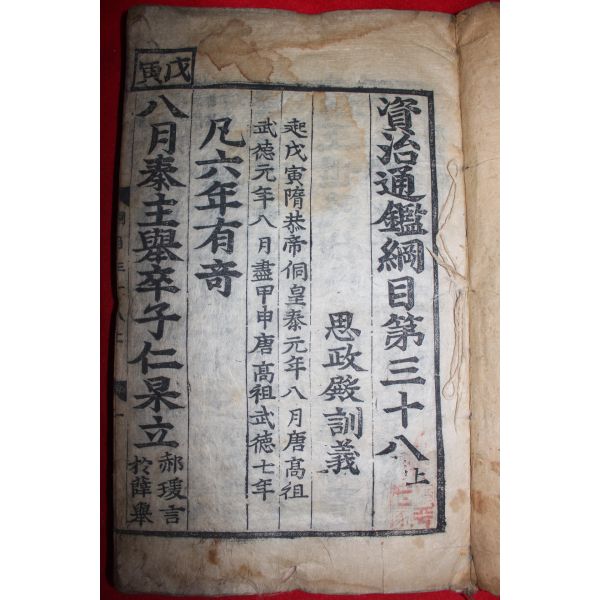 資治通鑑綱目第三十八上
思政殿訓義
起戊寅隋恭帝侗皇秦元年八月唐高祖
武德元年八月盡甲申唐高祖武德七年
凡六年有奇
戊寅
八月秦主舉卒子仁杲立
郝瑗言
於薛舉